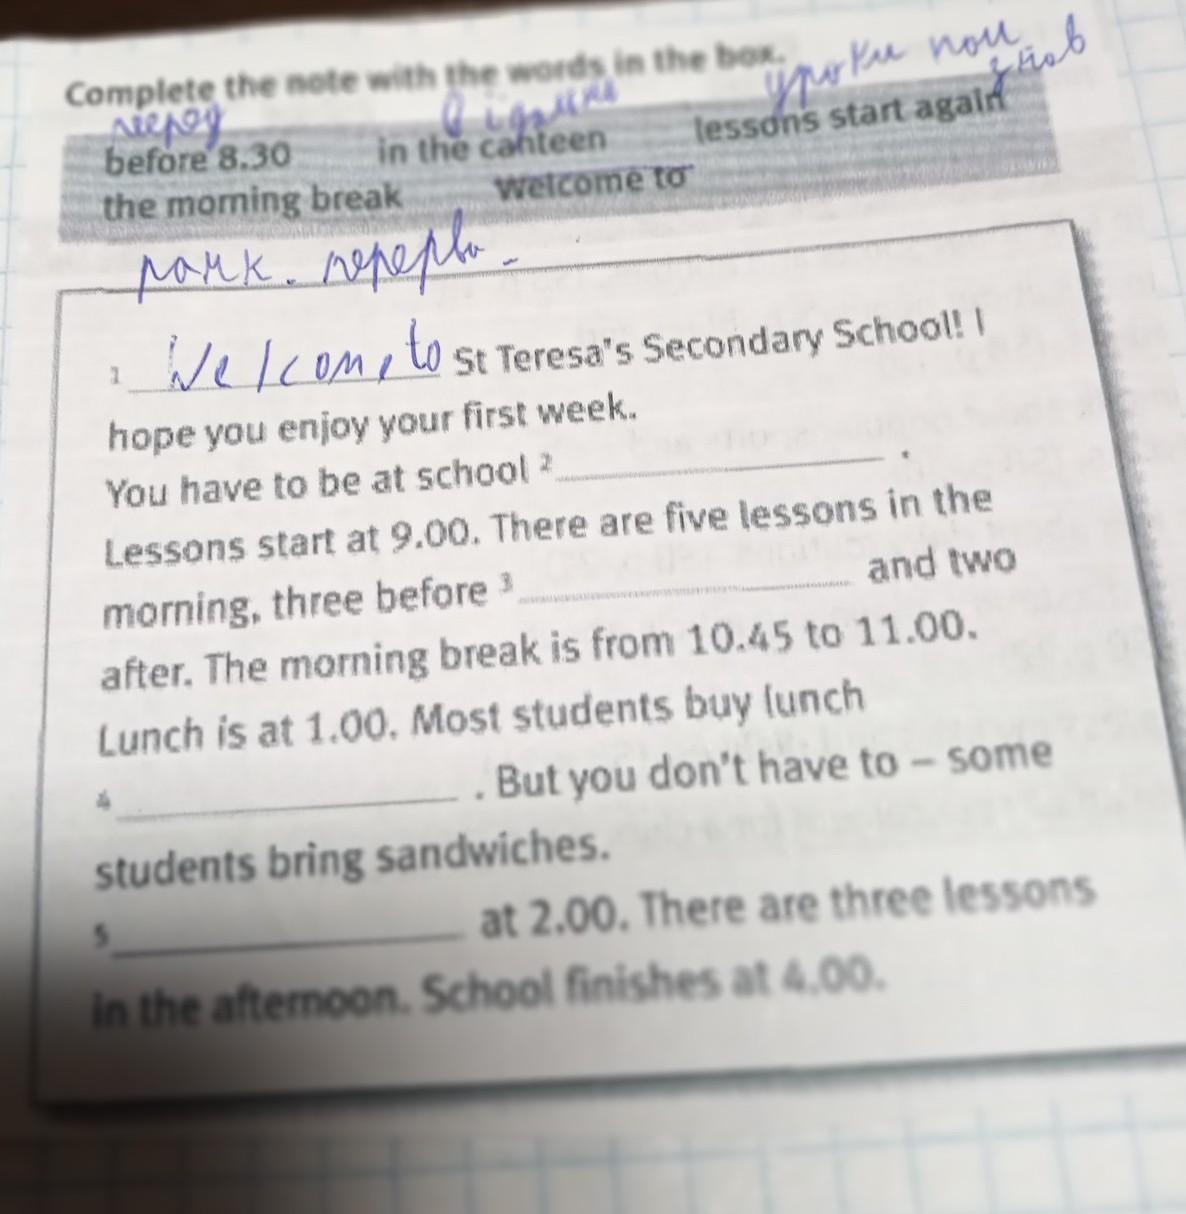 Complete the note with the words in the box.
перед в їдальні уроки поч знов
before 8.30 in the canteen lessons start again
the morning break Welcome to
ранк. перерва
1 Welcom, to St Teresa's Secondary School! I
hope you enjoy your first week.
You have to be at school 2 .
Lessons start at 9.00. There are five lessons in the
morning, three before 3 and two
after. The morning break is from 10.45 to 11.00.
Lunch is at 1.00. Most students buy lunch
4 . But you don't have to – some
students bring sandwiches.
5 at 2.00. There are three lessons
in the afternoon. School finishes at 4.00.